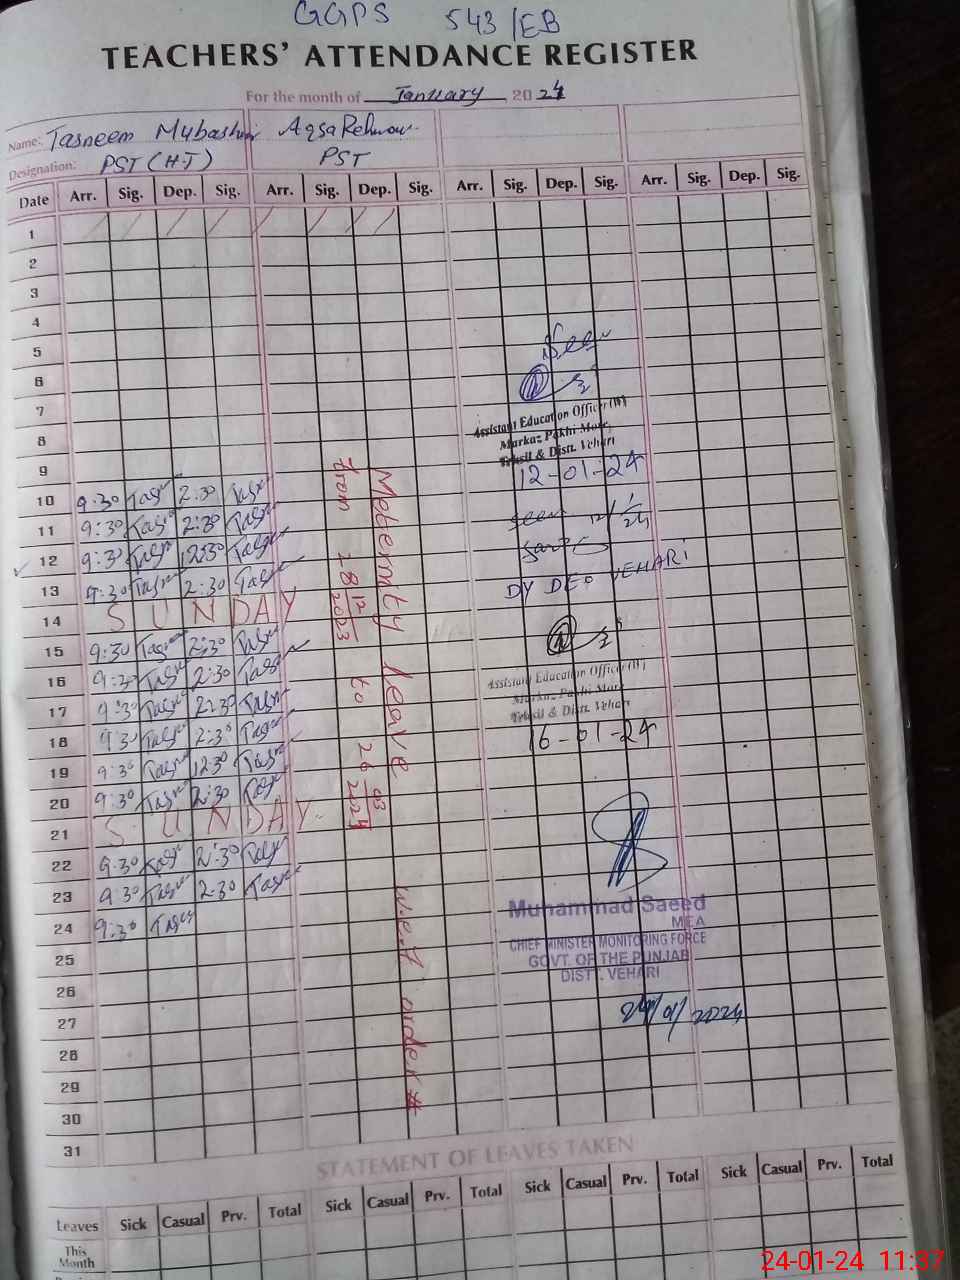 GGPS 543/EB
TEACHERS' ATTENDANCE REGISTER
For the month of January, 2024
Name: Tasneem Mubashir Aqsa Rehman
Designation: PST (H.T) PST
Date Arr. Sig. Dep. Sig. Arr. Sig. Dep. Sig. Arr. Sig. Dep. Sig. Arr. Sig. Dep. Sig.
1
2
3
4
5
6
7
8
9
10 9:30 Tasn 2:30 Tasn
11 9:30 Tasn 2:30 Tasn
12 9:30 Tasn 12:30 Tasn
13 9:30 Tasn 2:30 Tasn
14 SUNDAY
15 9:30 Tasn 2:30 Tasn
16 9:30 Tasn 2:30 Tasn
17 9:30 Tasn 2:30 Tasn
18 9:30 Tasn 2:30 Tasn
19 9:30 Tasn 12:30 Tasn
20 9:30 Tasn 2:30 Tasn
21 SUNDAY
22 9:30 Tasn 2:30 Tasn
23 9:30 Tasn 2:30 Tasn
24 9:30 Tasn
25
26
27
28
29
30
31
Meternity leave w.e.f order #
from 18 12 2023 to 26 03 2024
Seen
Assistant Education Officer (W)
Markaz Pakhi More,
Tehsil & Distt. Vehari
12-01-24
Seen 12/1/24
DY DEO VEHARI
Assistant Education Officer (W)
Markaz Pakhi More
Tehsil & Distt. Vehari
16-01-24
Muhammad Saeed
MEA
CHIEF MINISTER MONITORING FORCE
GOVT. OF THE PUNJAB
DISTT. VEHARI
24/01/2024
STATEMENT OF LEAVES TAKEN
Leaves Sick Casual Prv. Total Sick Casual Prv. Total Sick Casual Prv. Total Sick Casual Prv. Total
This
Month
24-01-24 11:37